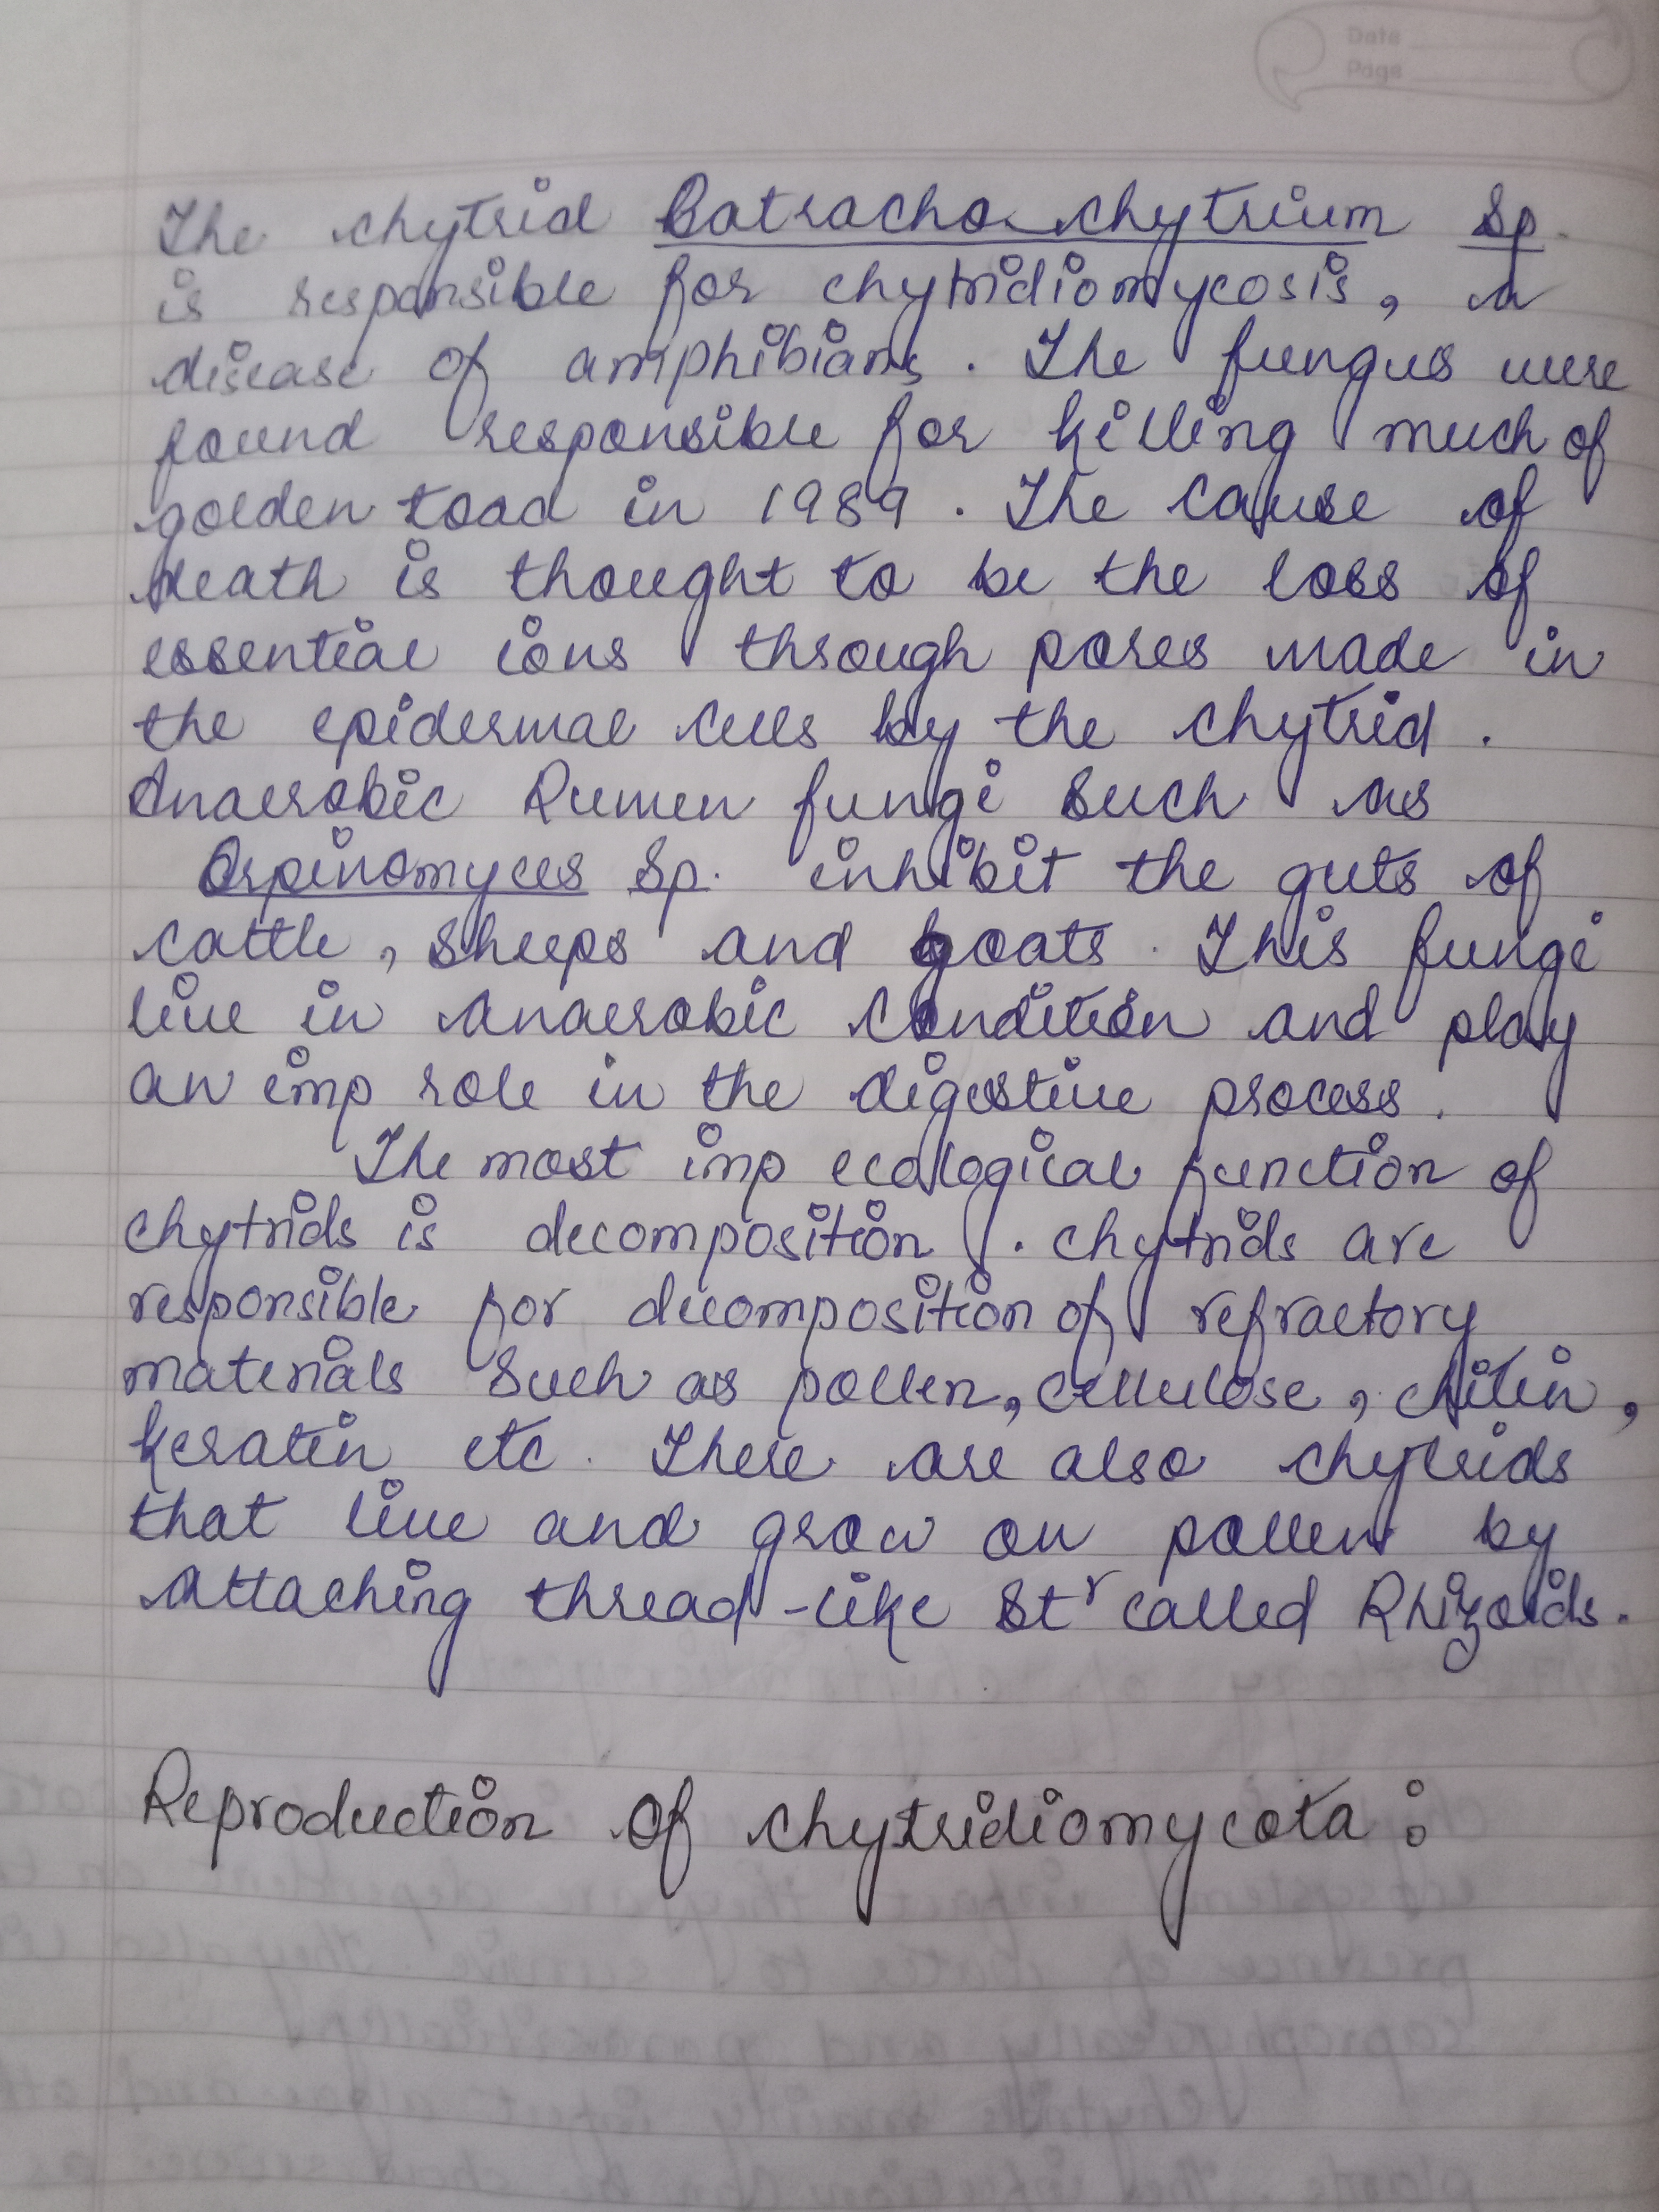 Date
Page
The chytrid Batrachochytrium Sp.
is responsible for chytridiomycosis, a
disease of amphibians. The fungus were
found responsible for killing much of
golden toad in 1989. The cause of
death is thought to be the loss of
essential ions through pores made in
the epidermal cells by the chytrid.
Anaerobic Rumen fungi such as
Orpinomyces Sp. inhibit the guts of
cattle, sheeps and goats. This fungi
live in anaerobic condition and play
an imp role in the digestive process.
The most imp ecological function of
chytrids is decomposition. chytrids are
responsible for decomposition of refractory
materials such as pollen, cellulose, chitin,
keratin etc. There are also chytrids
that live and grow on pollen by
attaching thread-like Stʳ called Rhizoids.
Reproduction of chytridiomycota: